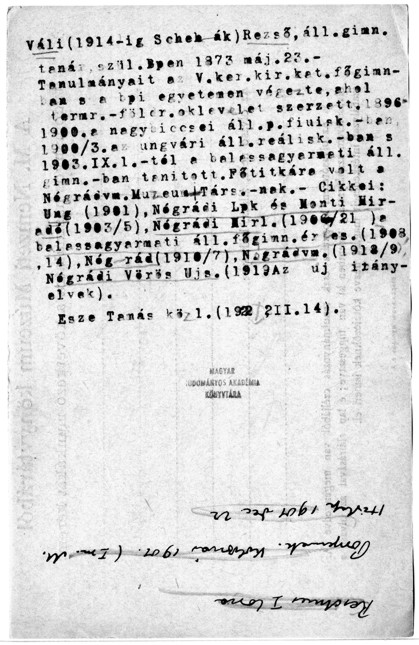 Váli(1914-ig Scheh ák)Rezső,áll.gimn.
tanár,szül.Bpen 1873 máj.23.-
Tanulmányait az V.ker.kir.kat.főgimn-
ban s a bpi egyetemen végezte,ahol
termr.-földr.oklevelet szerzett.1896-
1900.a nagybiccsei áll.p.fiuisk.-ban,
1900/3.az ungvári áll.reálisk.-ban s
1903.IX.1.-től a balassagyarmati áll.
gimn.-ban tanitott.Főtitkára volt a
Nógrádvm.Muzeum Társ.-nak.- Cikkei:
Ung (1901),Nógrádi Lpk és Honti Hir-
adó(1903/5),Nógrádi Hirl.(1906/21 )a
balassagyarmati áll.főgimn.értes.(1908
,14),Nóg rád(1910/7),Nógrádvm.(1918/9)
Nógrádi Vörös Ujs.(1919Az uj irány-
elvek).
Esze Tamás kö l.(192 2II.14).
MAGYAR
TUDOMÁNYOS AKADÉMIA
KÖNYVTÁRA
1901 dec 22
1901. (Im. M.
Ilona